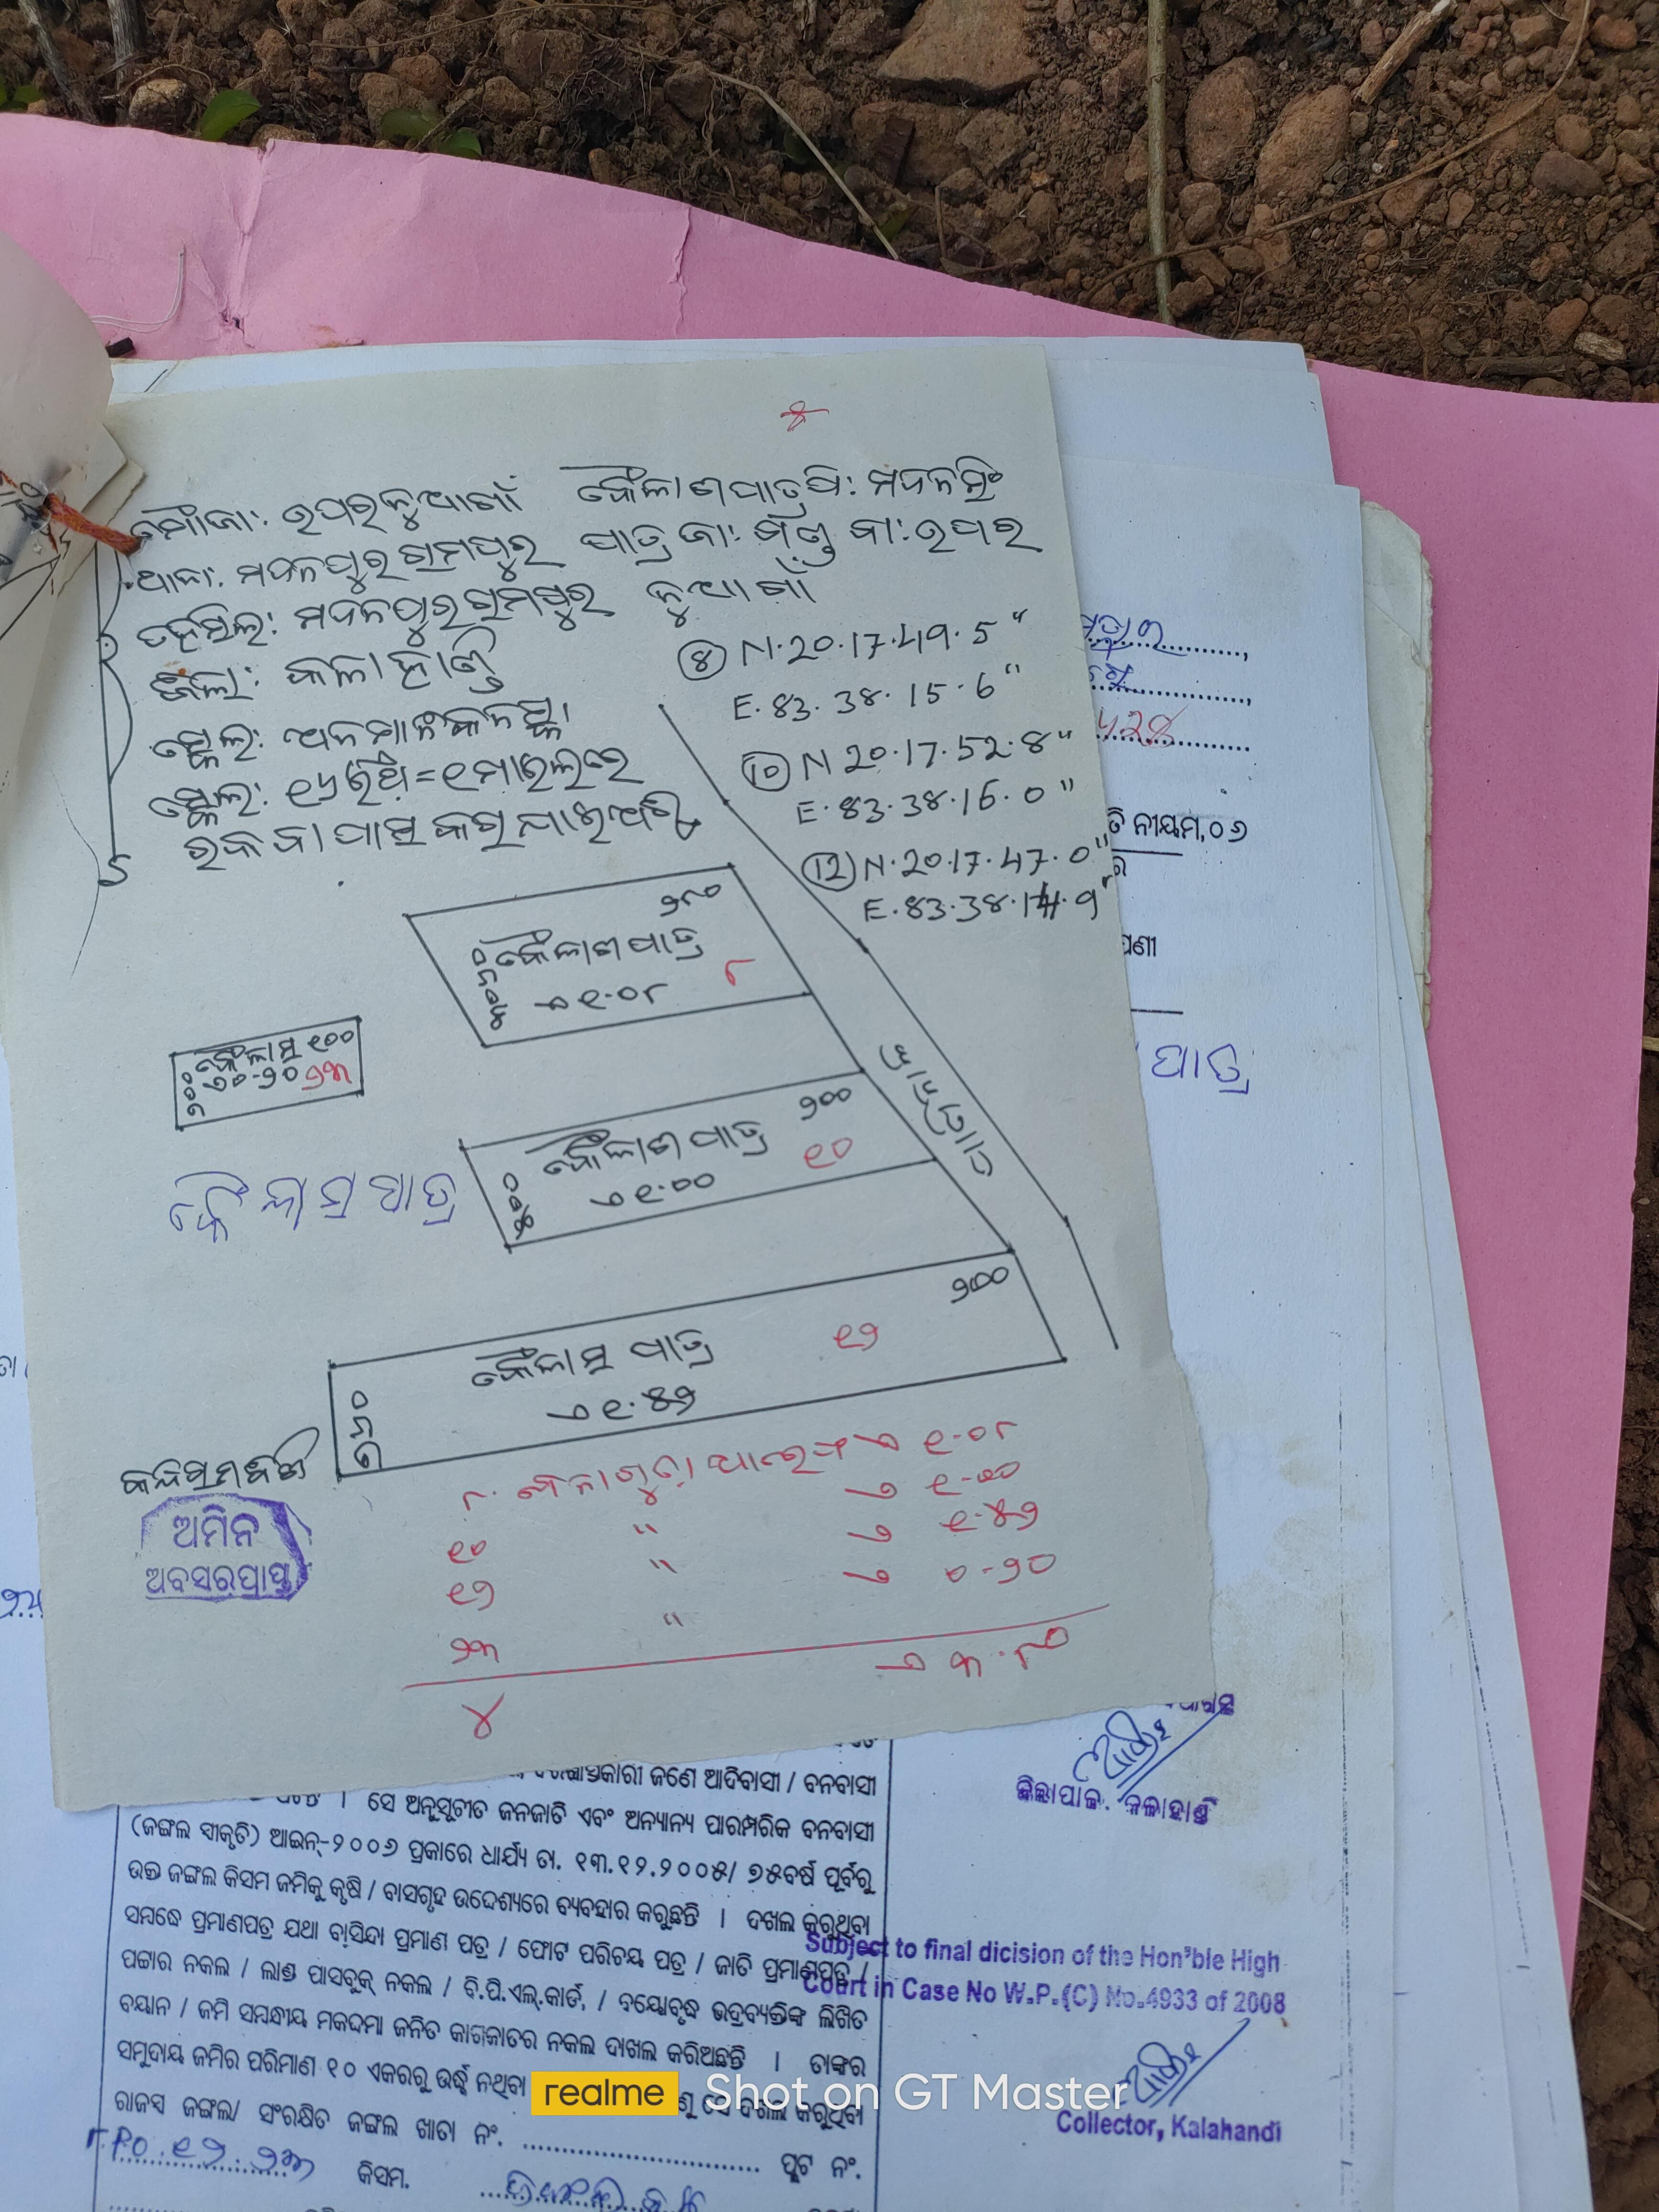 ମୌଜା: ଉପରକୁଆଗାଁ କୈଳାଶପାତ୍ର ପି: ମଦନସିଂ
ଥାନା: ମଦନପୁରରାମପୁର ପାତ୍ର ଜା: କନ୍ଧ ବା: ଉପର
ତହସିଲ: ମଦନପୁରରାମପୁର କୁଆଗାଁ
ଜିଲା: କଳାହାଣ୍ଡି
⑧ N.20.17.49.5"
E.83.38.15.6"
ସ୍କେଲ: ଅନୁମାନିକ ନକ୍ସା
⑩ N 20.17.52.8"
ସ୍କେଲ: ୧୬ ଇଞ୍ଚ = ୧ ମାଇଲରେ
E.83.38.16.0"
ରକବା ପାସ୍ କରାଯାଇଅଛି
⑫ N.20.17.47.0"
E.83.38.14.9"
୨୮୦
କୈଳାଶ ପାତ୍ର ୮
ଏ ୧.୦୮
କୈଳାସ ୧୦୦
ଏ ୦-୨୦ ୨୩
୨୦୦
କୈଳାଶ ପାତ୍ର ୧୦
ଏ ୧.୦୦
କୈଳାସ ପାତ୍ର
କୈଳାସ ପାତ୍ର ୧୨
ଏ ୧.୪୨
ଅମିନ
ଅବସରପ୍ରାପ୍ତ
୮ ଏ ୧-୦୮
୧୦ " ଏ ୧-୦୦
୧୨ " ଏ ୧-୪୨
୨୩ " ଏ ୦-୨୦
୪ ଏ ୩.୮୦
ତି ନୀୟମ,୦୬
ପାତ୍ର
ଜିଲ୍ଲାପାଳ. କଳାହାଣ୍ଡି
ଦରଖାସ୍ତକାରୀ ଜଣେ ଆଦିବାସୀ / ବନବାସୀ
। ସେ ଅନୁସୂଚୀତ ଜନଜାତି ଏବଂ ଅନ୍ୟାନ୍ୟ ପାରମ୍ପରିକ ବନବାସୀ
(ଜଙ୍ଗଲ ସ୍ୱୀକୃତି) ଆଇନ୍-୨୦୦୬ ପ୍ରକାରେ ଧାର୍ଯ୍ୟ ତା. ୧୩.୧୨.୨୦୦୫/ ୭୫ବର୍ଷ ପୂର୍ବରୁ
ଉକ୍ତ ଜଙ୍ଗଲ କିସମ ଜମିକୁ କୃଷି / ବାସଗୃହ ଉଦ୍ଦେଶ୍ୟରେ ବ୍ୟବହାର କରୁଛନ୍ତି । ଦଖଲ କରୁଥିବା
ସମ୍ବନ୍ଧେ ପ୍ରମାଣପତ୍ର ଯଥା ବାସିନ୍ଦା ପ୍ରମାଣ ପତ୍ର / ଫୋଟ ପରିଚୟ ପତ୍ର / ଜାତି ପ୍ରମାଣପତ୍ର /
ପଟ୍ଟାର ନକଲ / ଲାଣ୍ଡ ପାସବୁକ୍ ନକଲ / ବି.ପି.ଏଲ୍.କାର୍ଡ, / ବୟୋବୃଦ୍ଧ ଭଦ୍ରବ୍ୟକ୍ତିଙ୍କ ଲିଖିତ
ବୟାନ / ଜମି ସମ୍ବନ୍ଧୀୟ ମକଦ୍ଦମା ଜନିତ କାଗଜାତର ନକଲ ଦାଖଲ କରିଅଛନ୍ତି । ତାଙ୍କର
ସମୁଦାୟ ଜମିର ପରିମାଣ ୧୦ ଏକରରୁ ଉର୍ଦ୍ଧ୍ୱ ନଥିବା ସେ ଦଖଲ କରୁଥିବା
ରାଜସ୍ୱ ଜଙ୍ଗଲ/ ସଂରକ୍ଷିତ ଜଙ୍ଗଲ ଖାତା ନଂ. ........ ପ୍ଲଟ ନଂ.
୮.୧୦.୧୨.୨୩ କିସମ.
Subject to final dicision of the Hon'ble High
Court in Case No W.P.(C) No.4933 of 2008
Collector, Kalahandi
realme Shot on GT Master